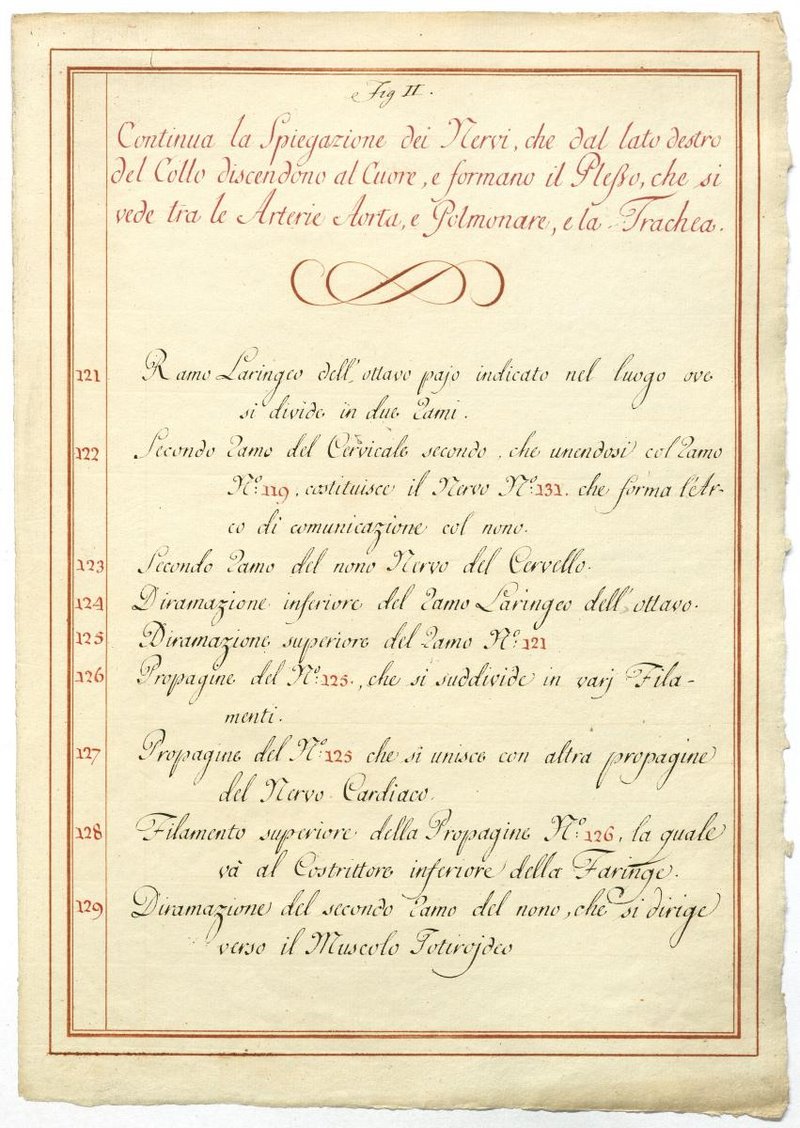 Fig II.
Continua la Spiegazione dei Nervi, che dal lato destro
del Collo discendono al Cuore, e formano il Plesso, che si
vede tra le Arterie Aorta, e Polmonare, e la Trachea.
121 Ramo Laringeo dell'ottavo pajo indicato nel luogo ove
si divide in due Rami.
122 Secondo Ramo del Cervicale secondo, che unendosi col Ramo
No: 119, costituisce il Nervo No: 131. che forma l'Ar-
co di comunicazione col nono.
123 Secondo Ramo del nono Nervo del Cervello.
124 Diramazione inferiore del Ramo Laringeo dell'ottavo.
125 Diramazione superiore del Ramo No: 121
126 Propagine del No: 125., che si suddivide in varj Fila-
menti.
127 Propagine del No: 125 che si unisce con altra propagine
del Nervo Cardiaco.
128 Filamento superiore della Propagine No: 126, la quale
và al Costrittore inferiore della Faringe.
129 Diramazione del secondo Ramo del nono, che si dirige
verso il Muscolo Totirojdeo